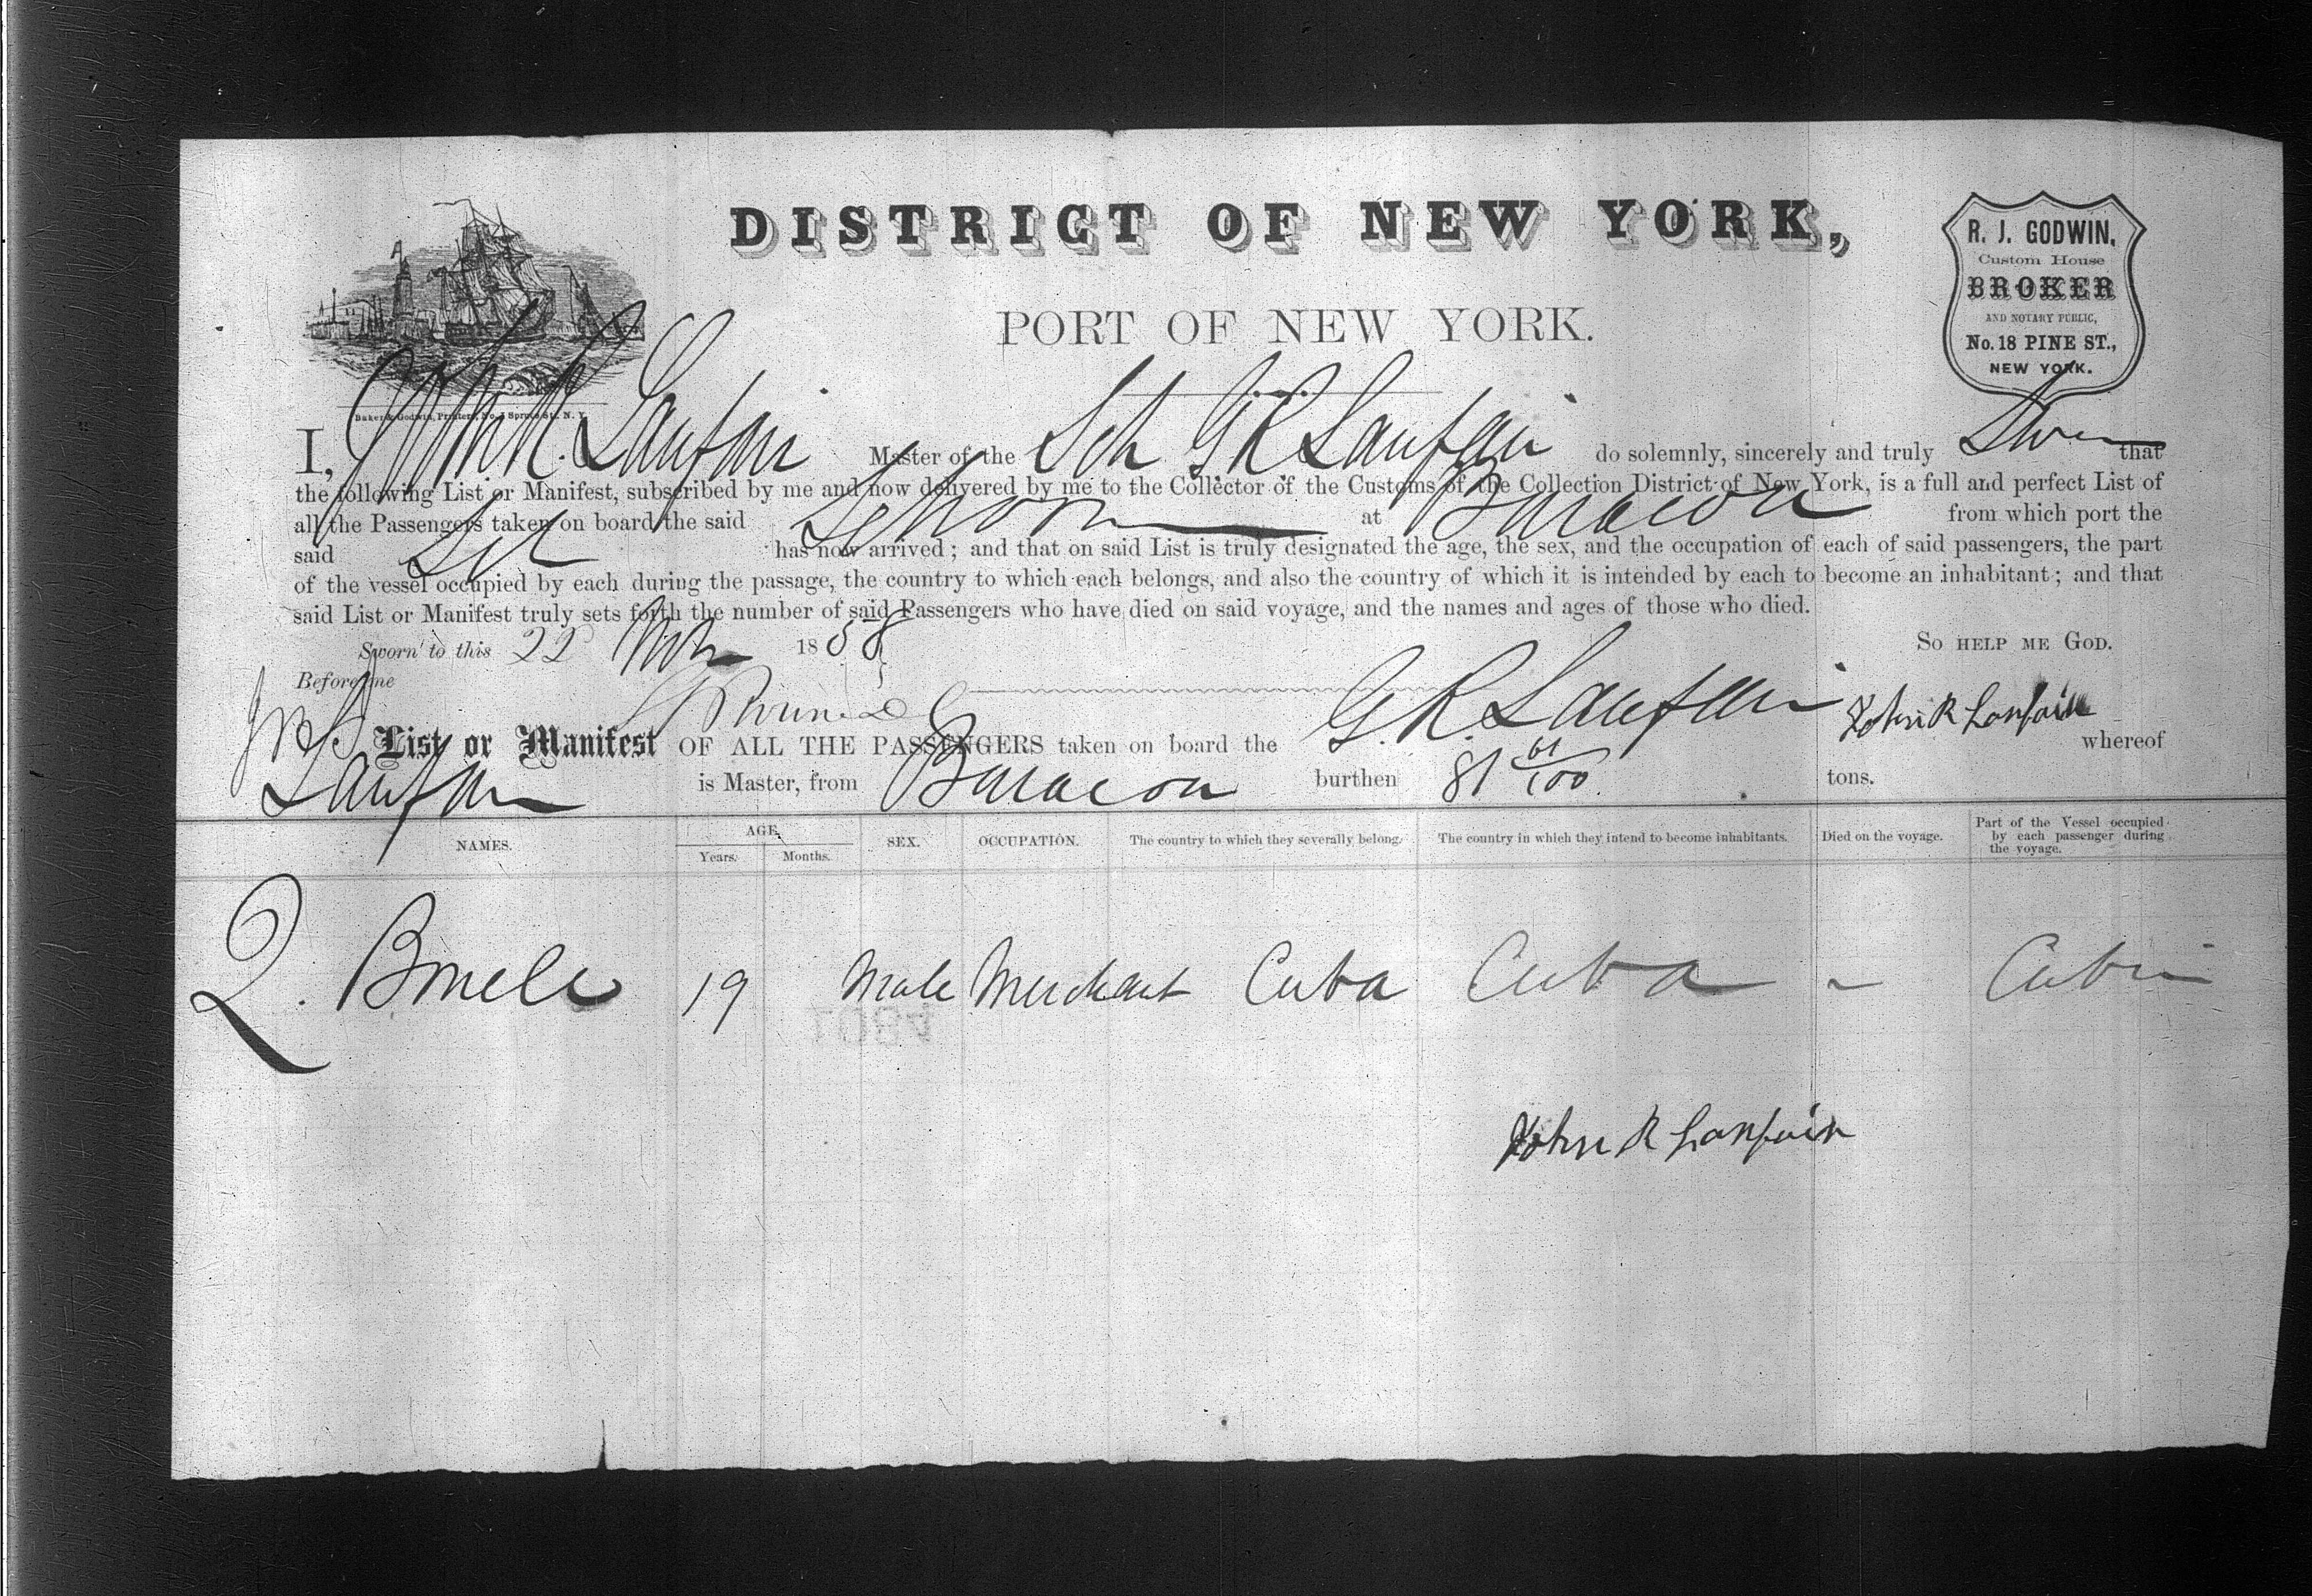 DISTRICT OF NEW YORK,
PORT OF NEW YORK.
R. J. GODWIN,
Custom House
BROKER
AND NOTARY PUBLIC,
No. 18 PINE ST.,
NEW YORK.
Baker & Godwin, Printers, No. 1 Spruce St. N. Y.
I, John R. Lanfair Master of the Sch G R Lanfair do solemnly, sincerely and truly Swear that
the following List or Manifest, subscribed by me and now delivered by me to the Collector of the Customs of the Collection District of New York, is a full and perfect List of
all the Passengers taken on board the said Schooner at Baracoa from which port the
said Sch has now arrived; and that on said List is truly designated the age, the sex, and the occupation of each of said passengers, the part
of the vessel occupied by each during the passage, the country to which each belongs, and also the country of which it is intended by each to become an inhabitant; and that
said List or Manifest truly sets forth the number of said Passengers who have died on said voyage, and the names and ages of those who died.
Sworn to this 22 Nov 1858 So HELP ME GOD.
Before me
John R Lanfair
List or Manifest OF ALL THE PASSENGERS taken on board the G. R. Lanfair whereof
Lanfair is Master, from Baracoa burthen 81 61/100 tons.
NAMES. AGE. Years. Months. SEX. OCCUPATION. The country to which they severally belong. The country in which they intend to become inhabitants. Died on the voyage. Part of the Vessel occupied by each passenger during the voyage.
19 Male Merchant Cuba Cuba - Cabin
1084
John R Lanfair